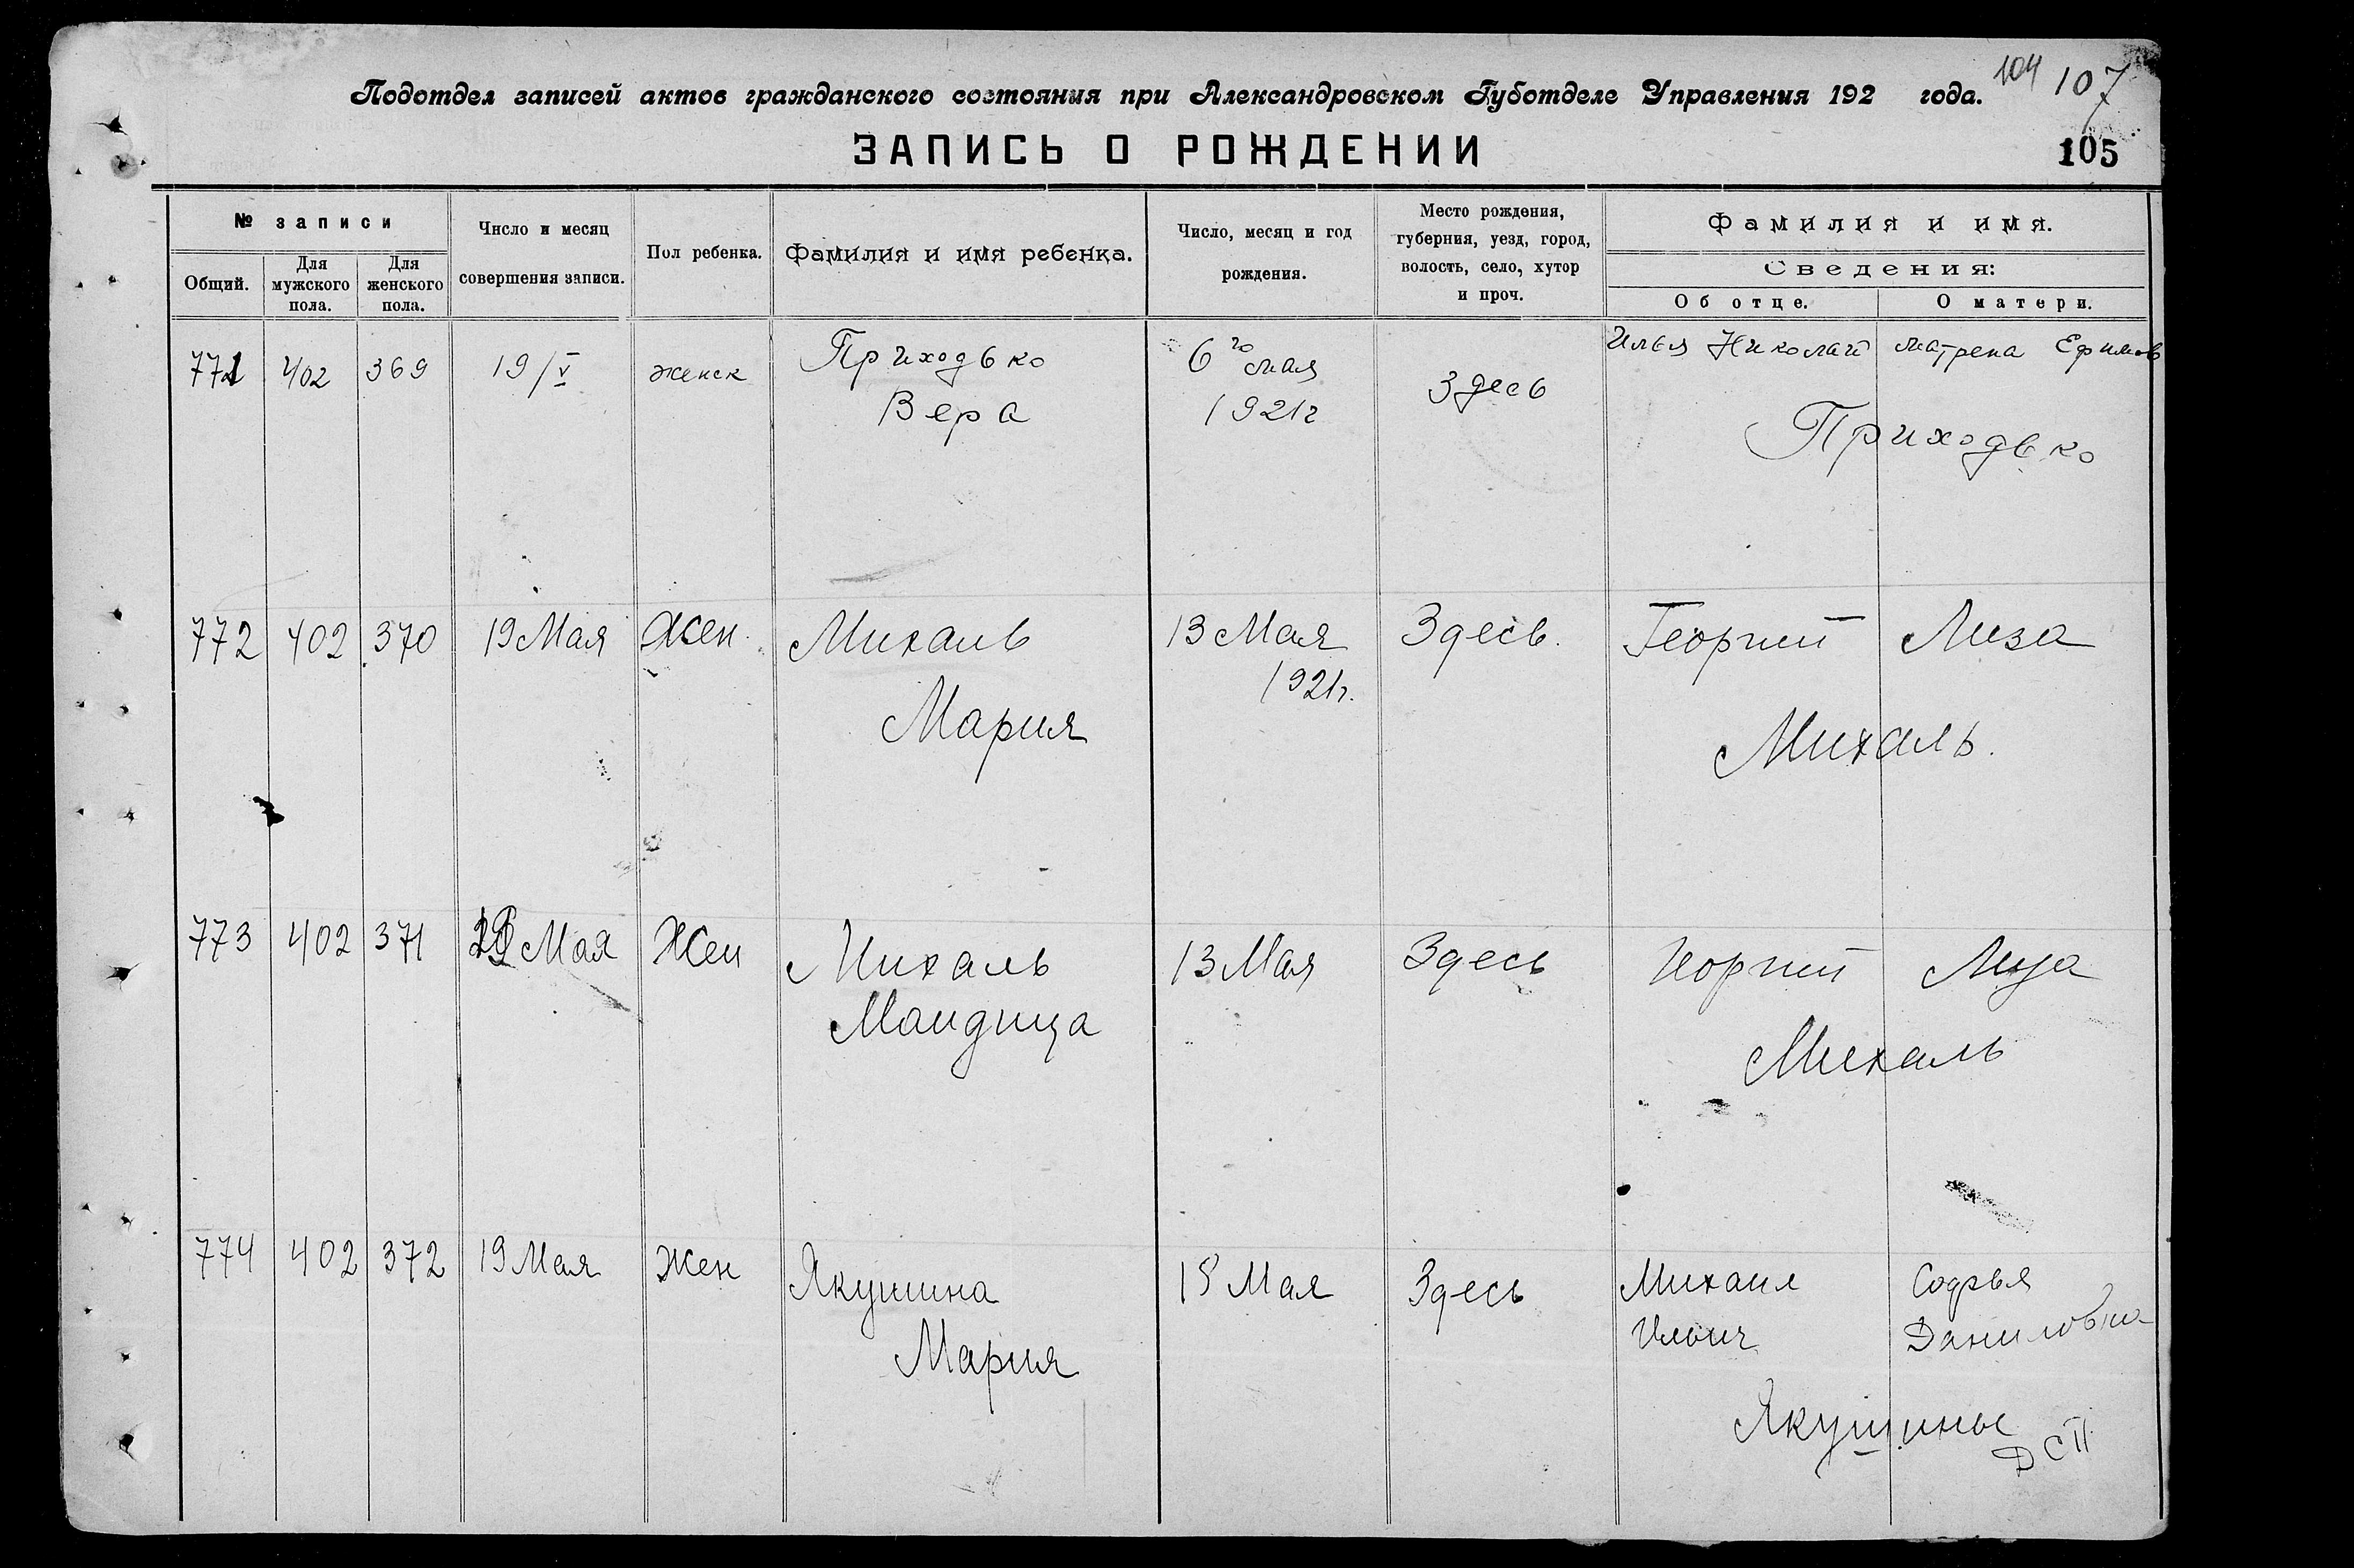 104 107
Подотдел записей актов гражданского состояния при Александровском Губотделе Управления 192 года.
ЗАПИСЬ О РОЖДЕНИИ
105
№ записи
Общий.
Для мужского пола.
Для женского пола.
Число и месяц совершения записи.
Пол ребенка.
Фамилия и имя ребенка.
Число, месяц и год рождения.
Место рождения, губерния, уезд, город, волость, село, хутор и проч.
Фамилия и имя.
Сведения:
Об отце.
О матери.
771 402 369 19/V женск Приходько 6го мая Здесь Илья Николай Матрена Ефимов
Вера 1921г Приходько
772 402 370 19 Мая Жен. Михаль 13 Мая Здесь. Георгий Лиза
1921г.
Мария Михаль.
773 402 371 19 Мая Жен Михаль 13 Мая Здесь Георгий Лиза
Мандица Михаль
774 402 372 19 Мая Жен Якушина 15 Мая Здесь Михаил Софья
Ильич Даниловна
Мария
Якушины
ДСП